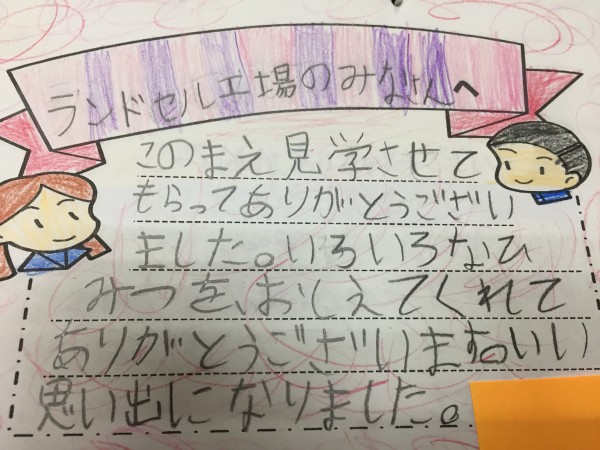 ランドセル工場のみなさんへ
このまえ見学させて
もらってありがとうござい
ました。いろいろなひ
みつを、おしえてくれて
ありがとうございます。いい
思い出しになりました。